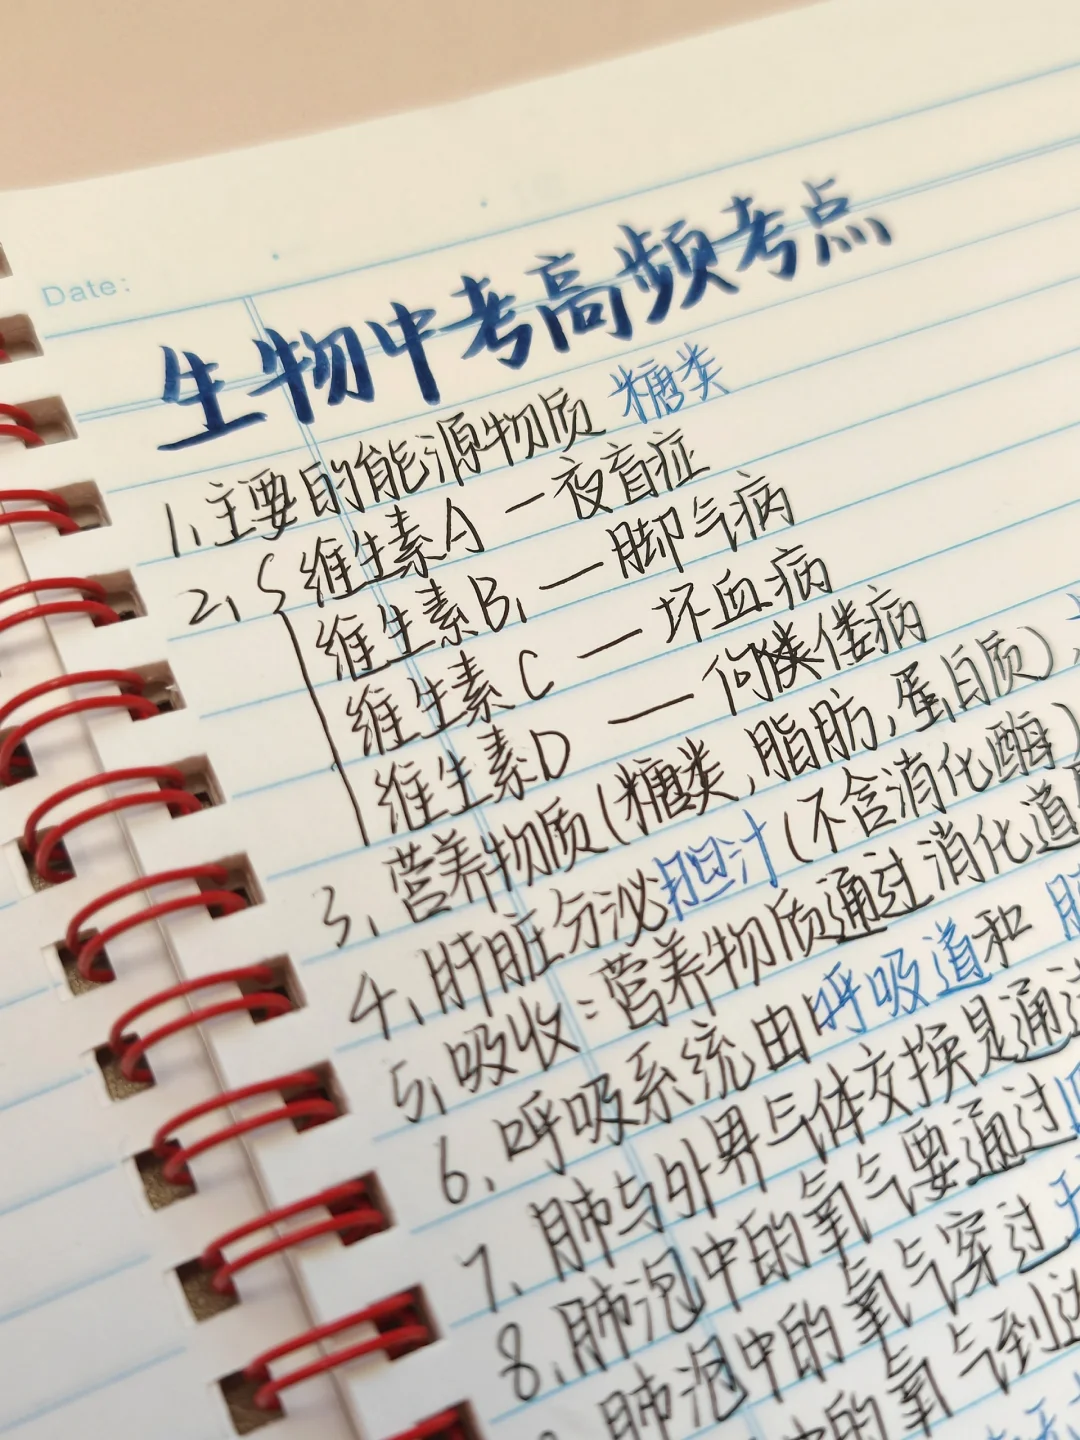 Date:
生物中考高频考点
1、主要的能源物质 糖类
2、维生素A — 夜盲症
维生素B₁ — 脚气病
维生素C — 坏血病
维生素D — 佝偻病
3、营养物质(糖类,脂肪,蛋白质)
4、肝脏分泌胆汁(不含消化酶)
5、吸收:营养物质通过消化道
6、呼吸系统由呼吸道和
7、肺与外界气体交换是通过
8、肺泡中的氧气要通过
肺泡中的氧气穿过
中的氧气到达